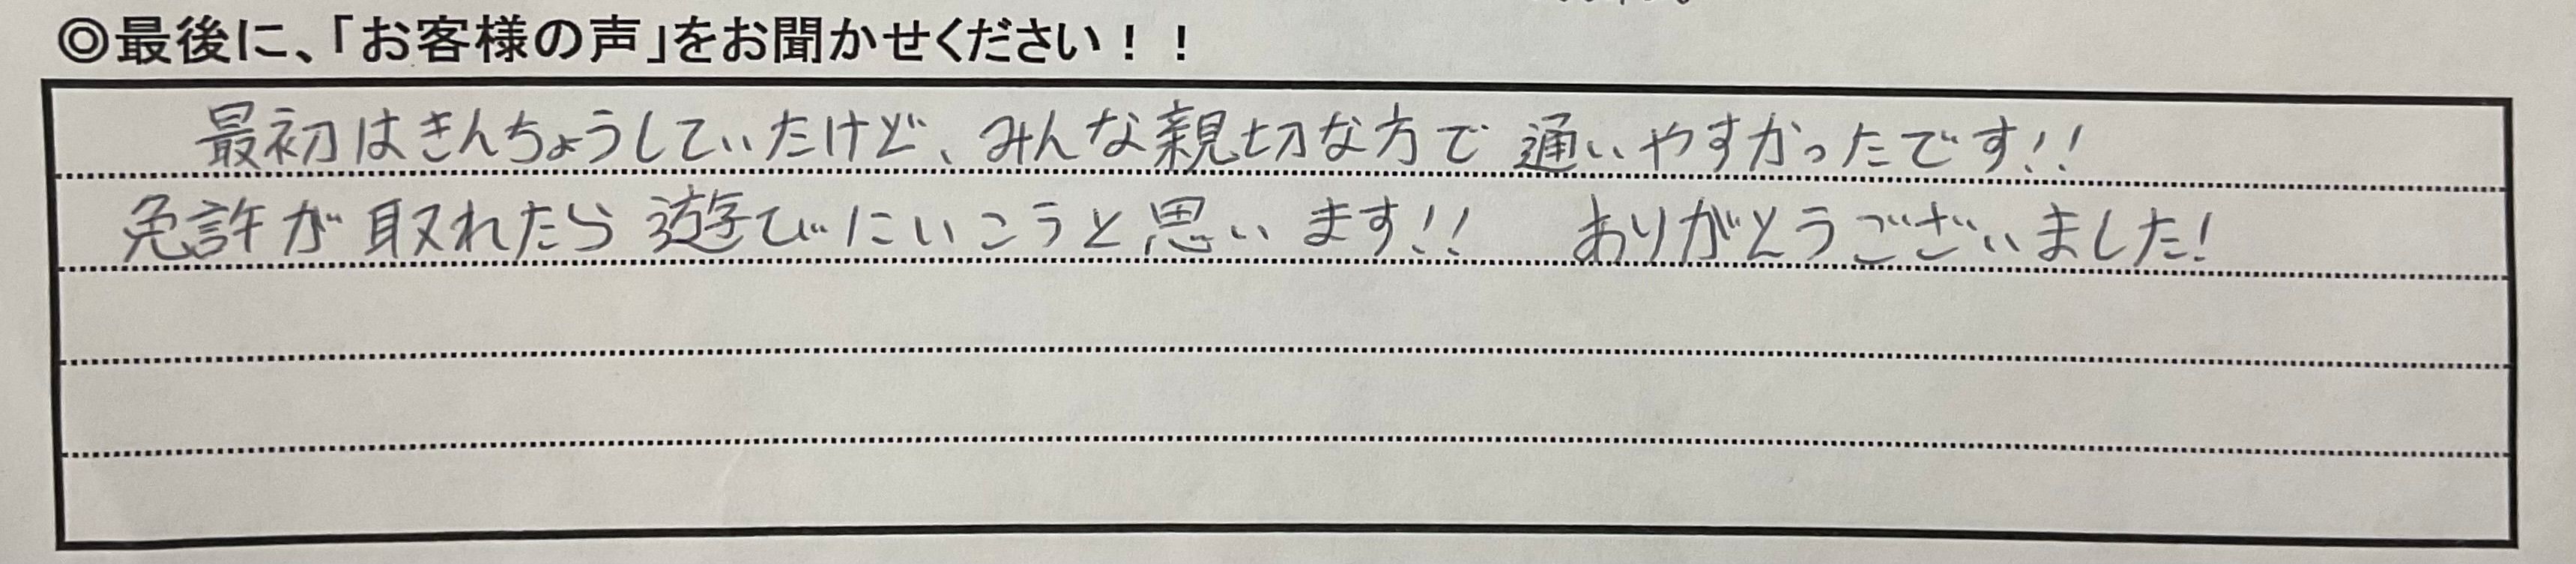 ◎最後に、「お客様の声」をお聞かせください！！
最初はきんちょうしていたけど、みんな親切な方で通いやすかったです!!
免許が取れたら遊びにいこうと思います!! ありがとうございました!